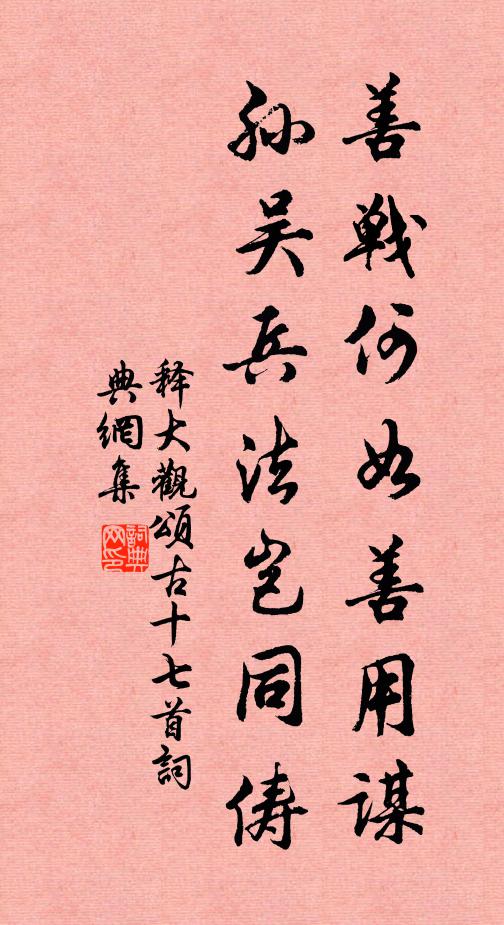 善戰何如善用謀
孫吴兵法豈同俦
释大觀頌古十七首詞
典網集
詞典
网印